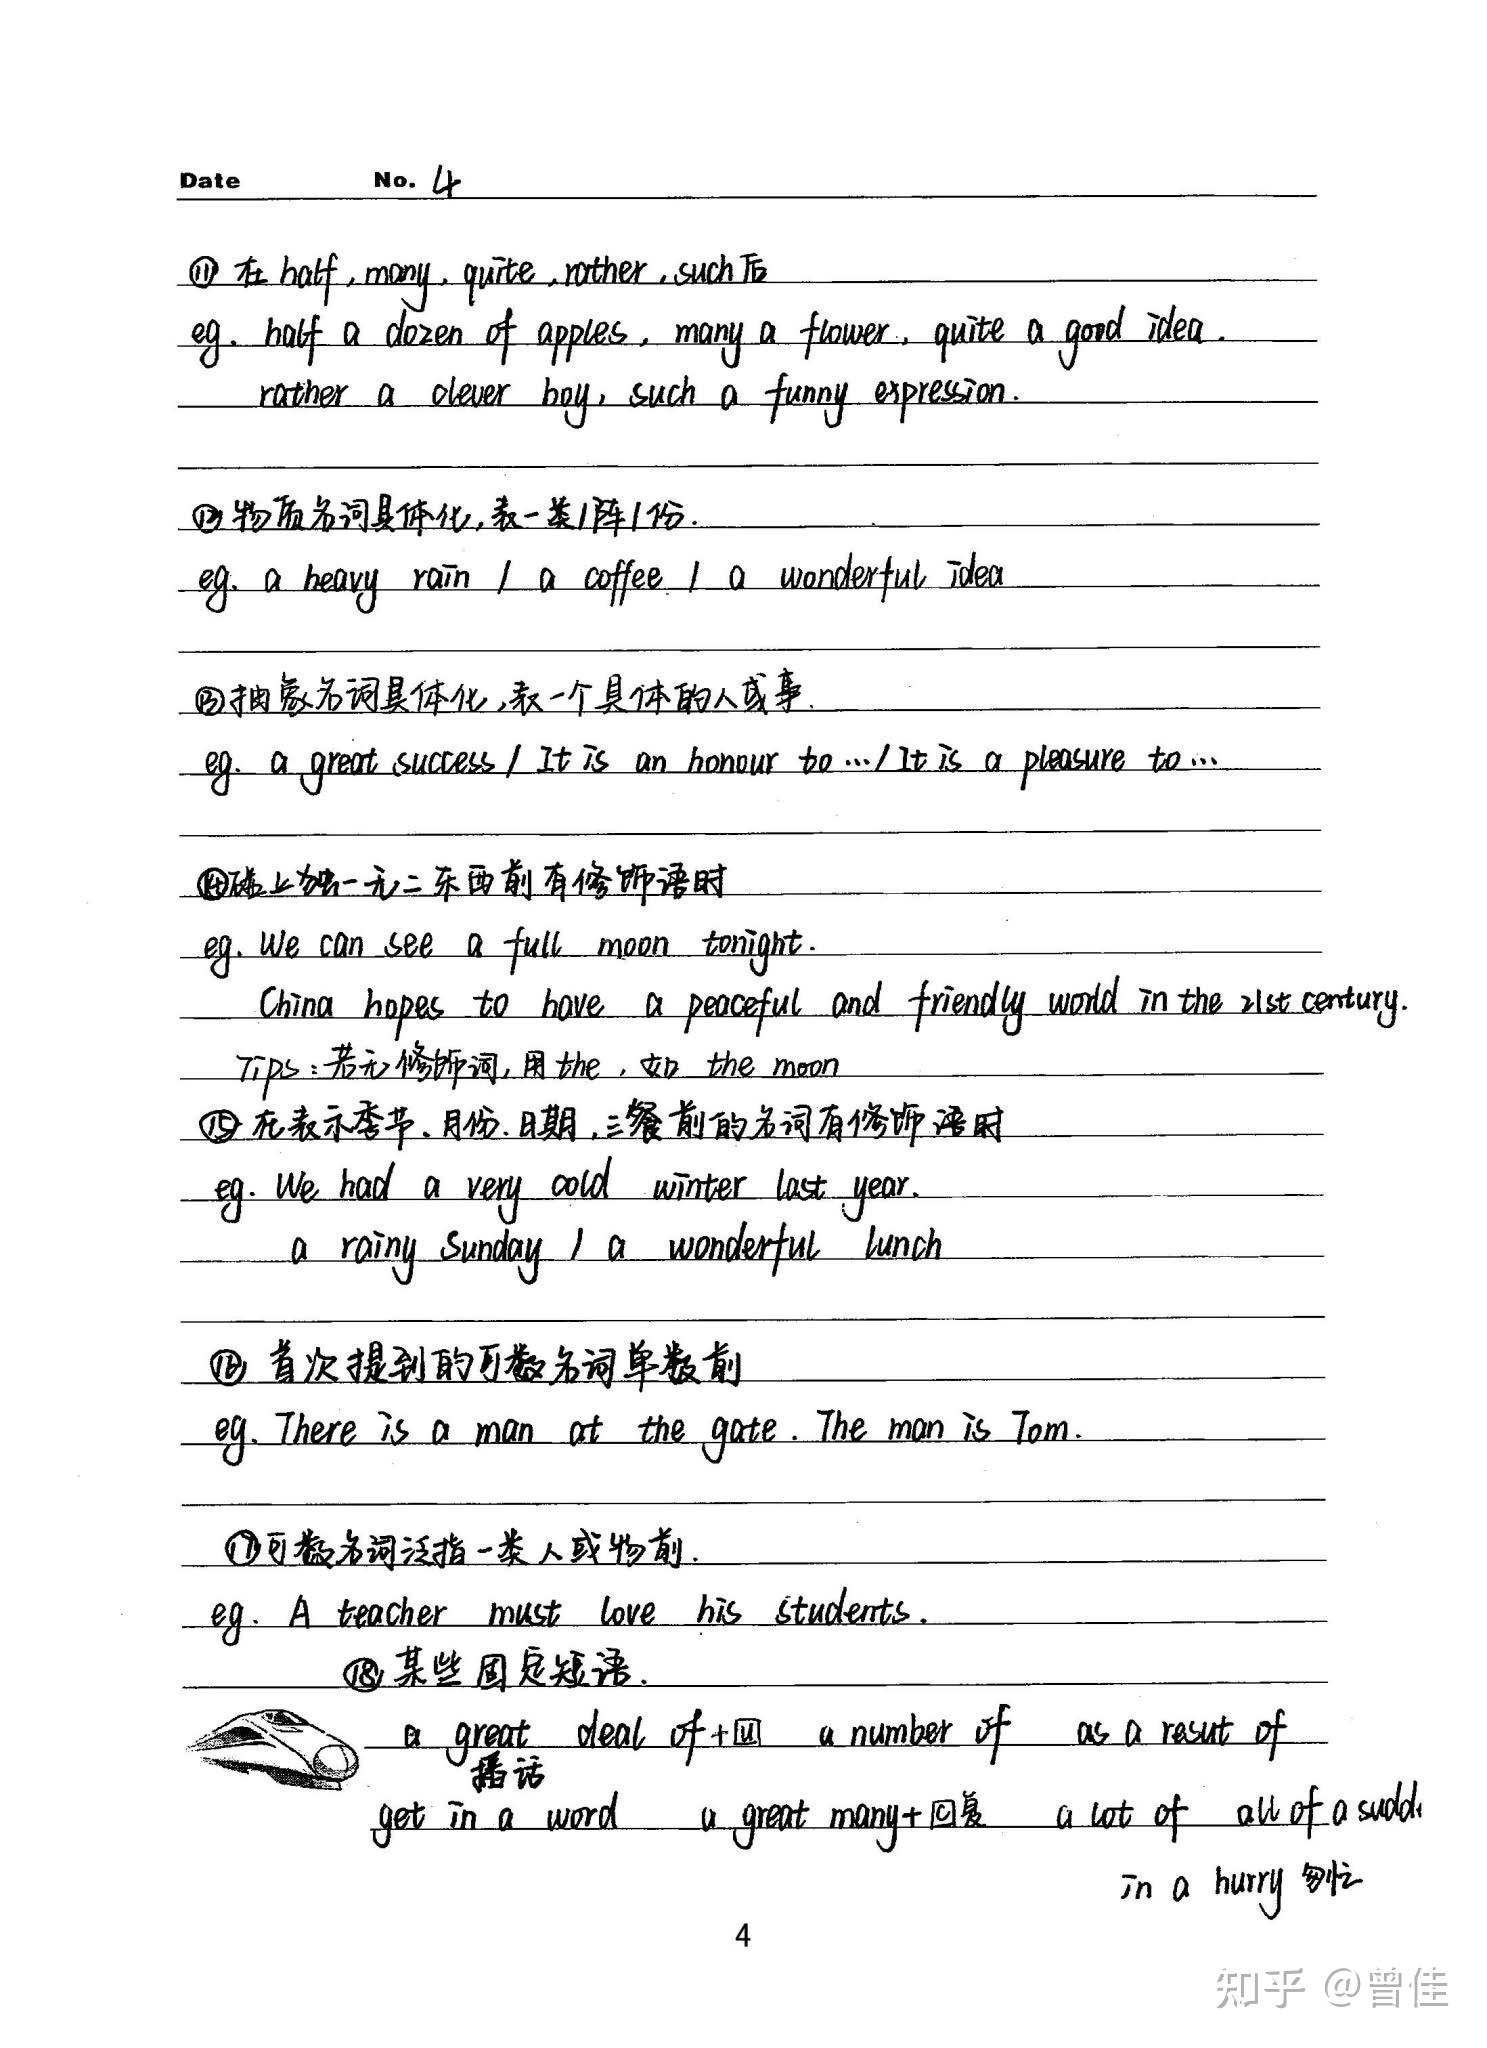 Date No. 4
⑪ 在 half, many, quite, rather, such后
eg. half a dozen of apples, many a flower, quite a good idea.
rather a clever boy, such a funny expression.
⑫ 物质名词具体化,表一类/阵/份.
eg. a heavy rain / a coffee / a wonderful idea
⑬ 抽象名词具体化,表一个具体的人或事.
eg. a great success / It is an honour to … / It is a pleasure to …
⑭ 上独一无二东西前有修饰语时
eg. We can see a full moon tonight.
China hopes to have a peaceful and friendly world in the 21st century.
Tips: 若无修饰词,用the,如 the moon
⑮ 在表示季节、月份、日期,三餐前的名词有修饰语时
eg. We had a very cold winter last year.
a rainy Sunday / a wonderful lunch
⑯ 首次提到的可数名词单数前
eg. There is a man at the gate. The man is Tom.
⑰ 可数名词泛指一类人或物前.
eg. A teacher must love his students.
⑱ 某些固定短语.
a great deal of+U a number of as a resut of
播话
get in a word a great many+C复 a lot of all of a sudd
in a hurry 匆忙
4
知乎 @曾佳